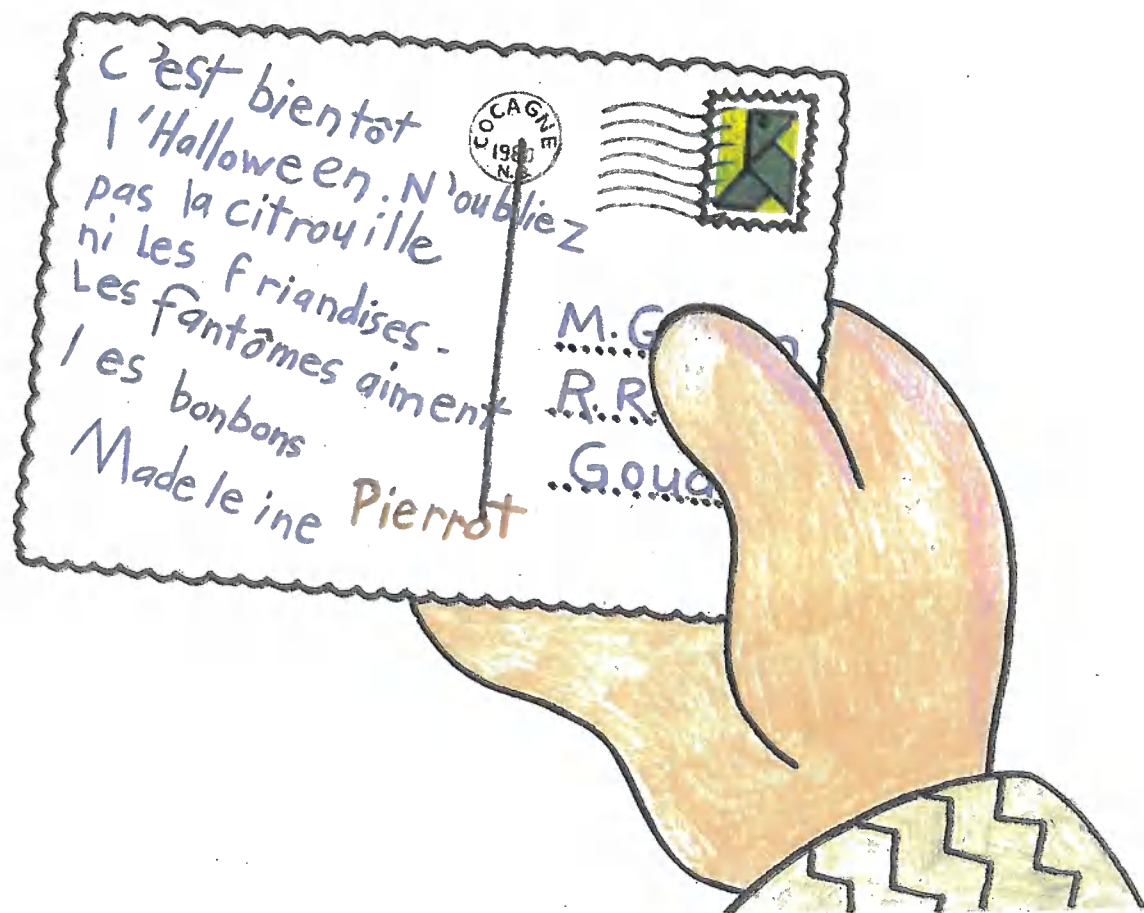 C'est bientôt
l'Halloween. N'oubliez
pas la citrouille
ni les friandises.
Les fantômes aiment
les bonbons
Madeleine Pierrot
COCAGNE
N.B.
M.
R.R.